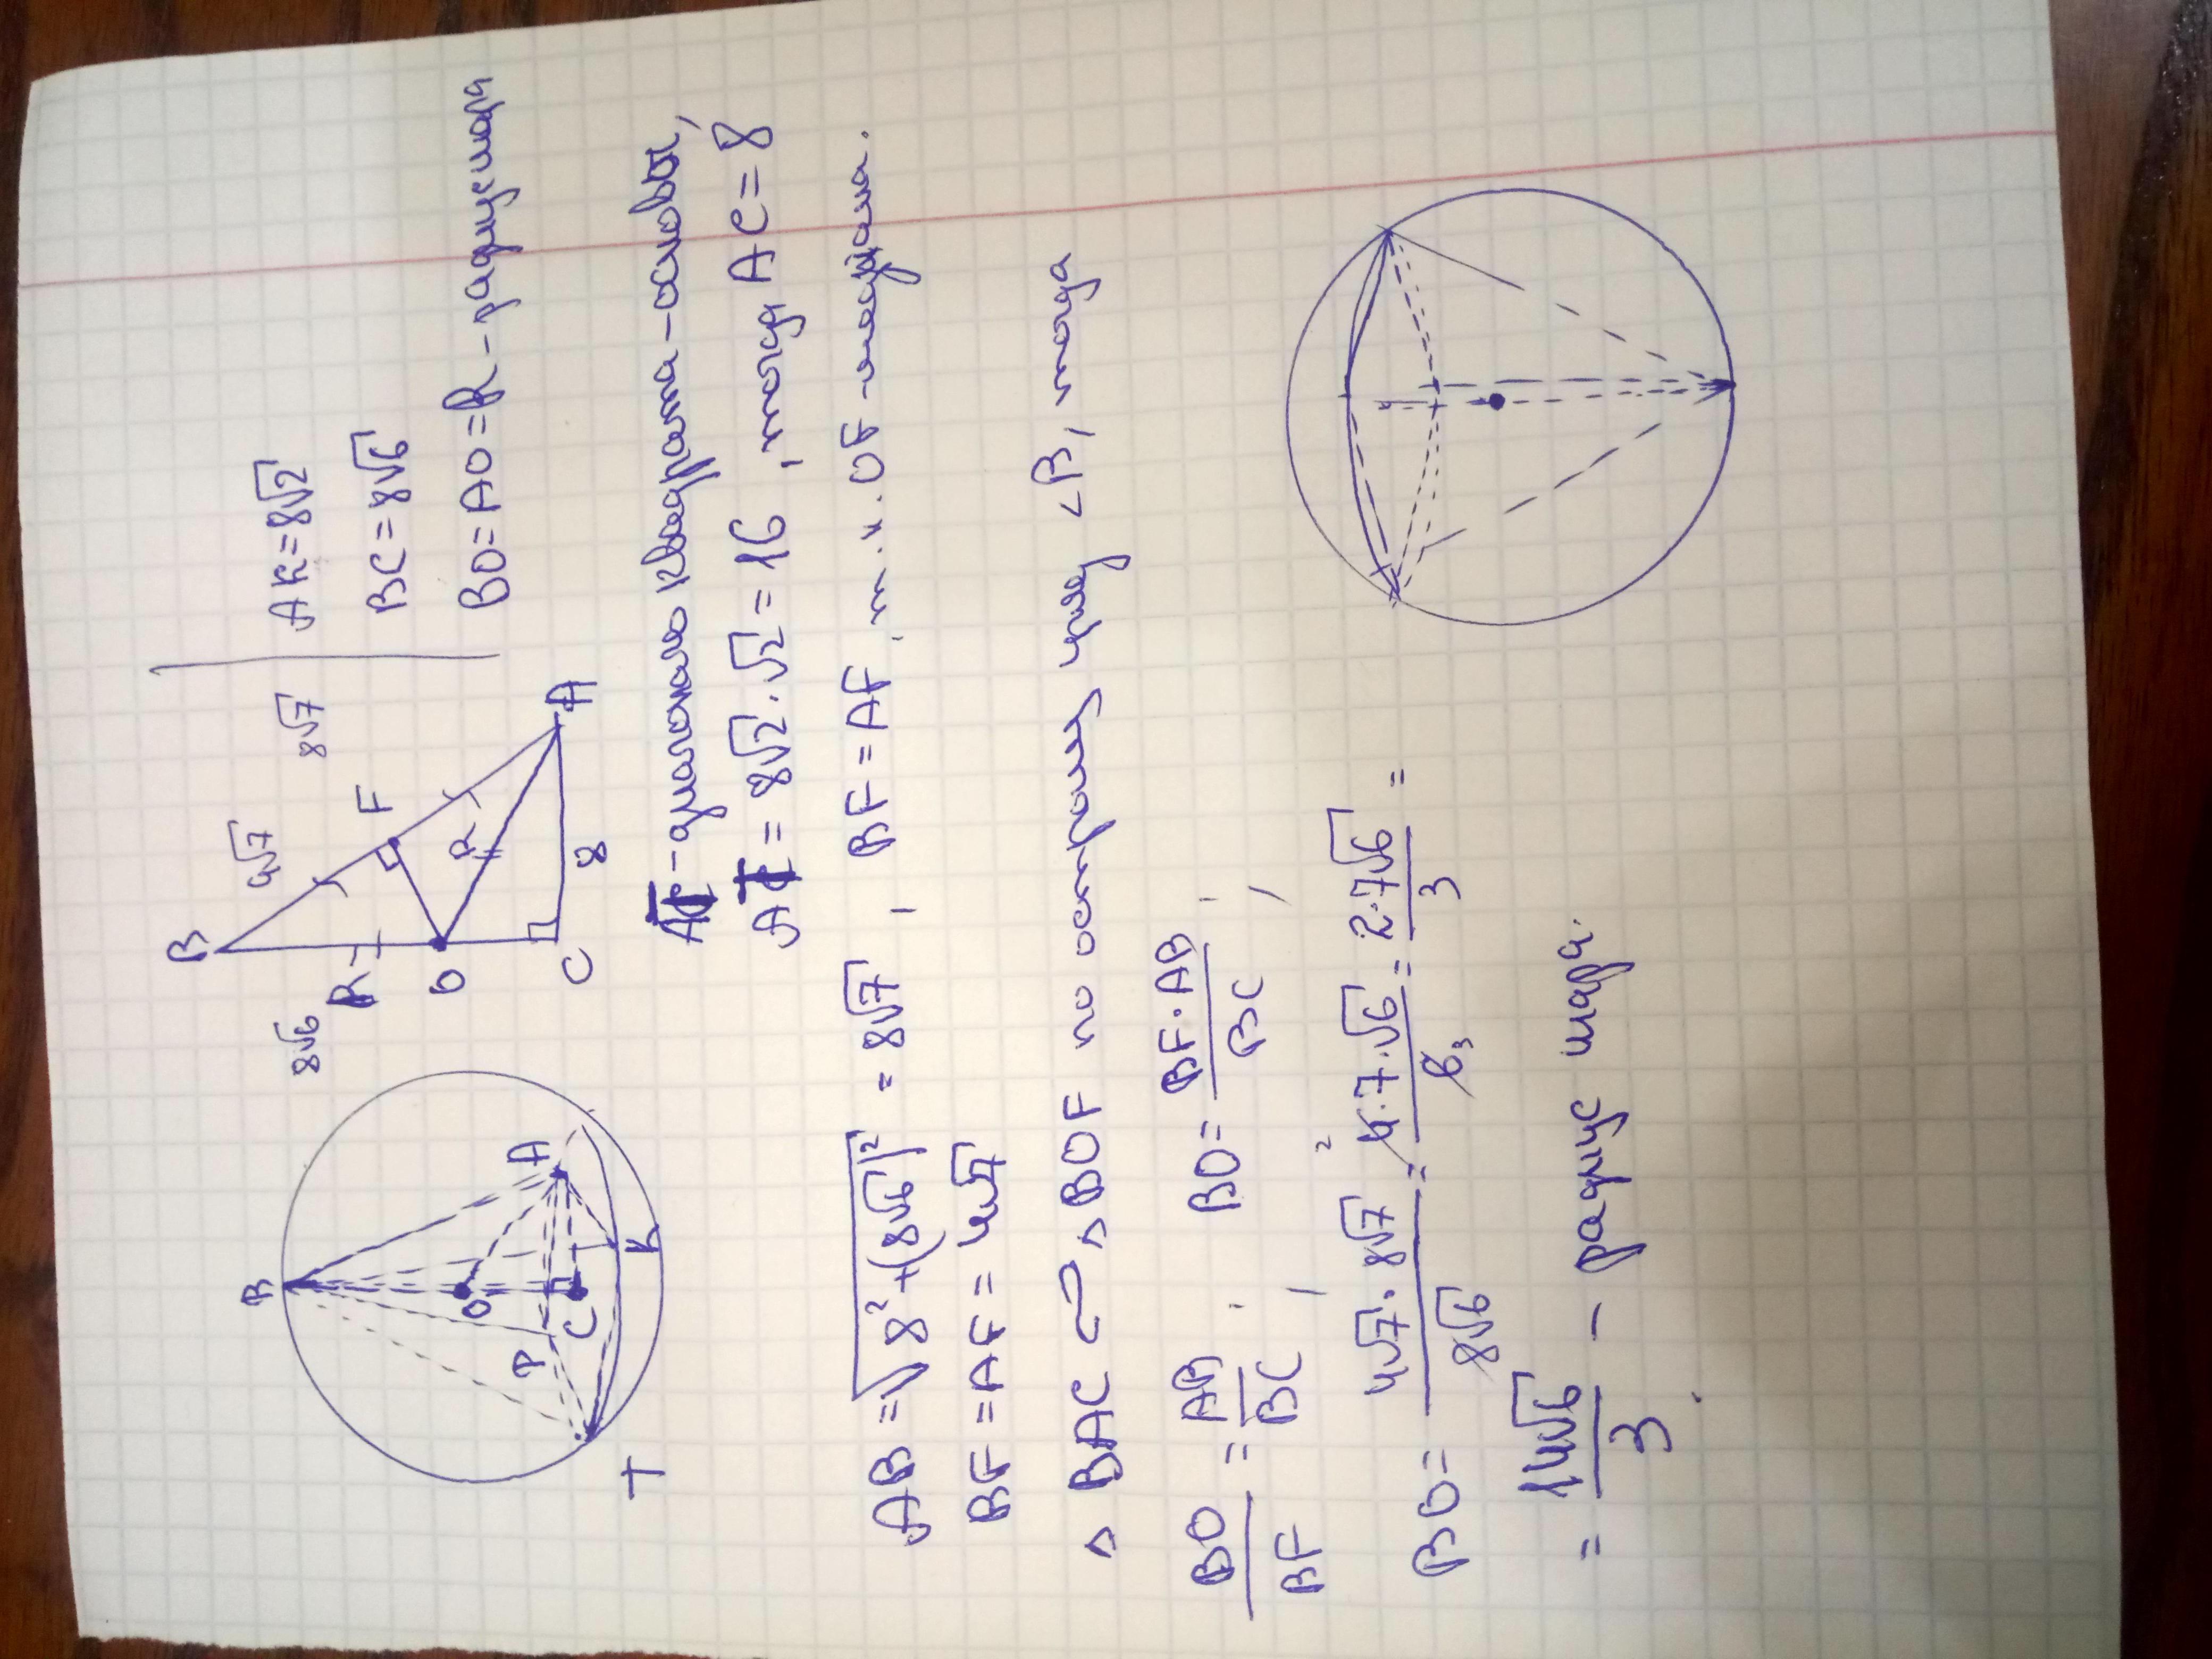 B
8√6
4√7
8√7
R
F
O
R
C
8
A
AK=8√2
BC=8√6
BO=AO=R-радиус шара
B
O
A
P
C
K
T
AT-диагональ квадрата-основы,
AT=8√2·√2=16, тогда AC=8
AB=√8²+(8√6)² =8√7, BF=AF, т.к. OF-медиана.
BF=AF=4√7
△BAC ∽ △BOF по острому углу ∠B, тогда
BO/BF = AB/BC ; BO= BF·AB/BC ;
BO= 4√7·8√7/8√6 = 4·7·√6/6 = 2·7√6/3 =
2
3
= 14√6/3 - радиус шара.